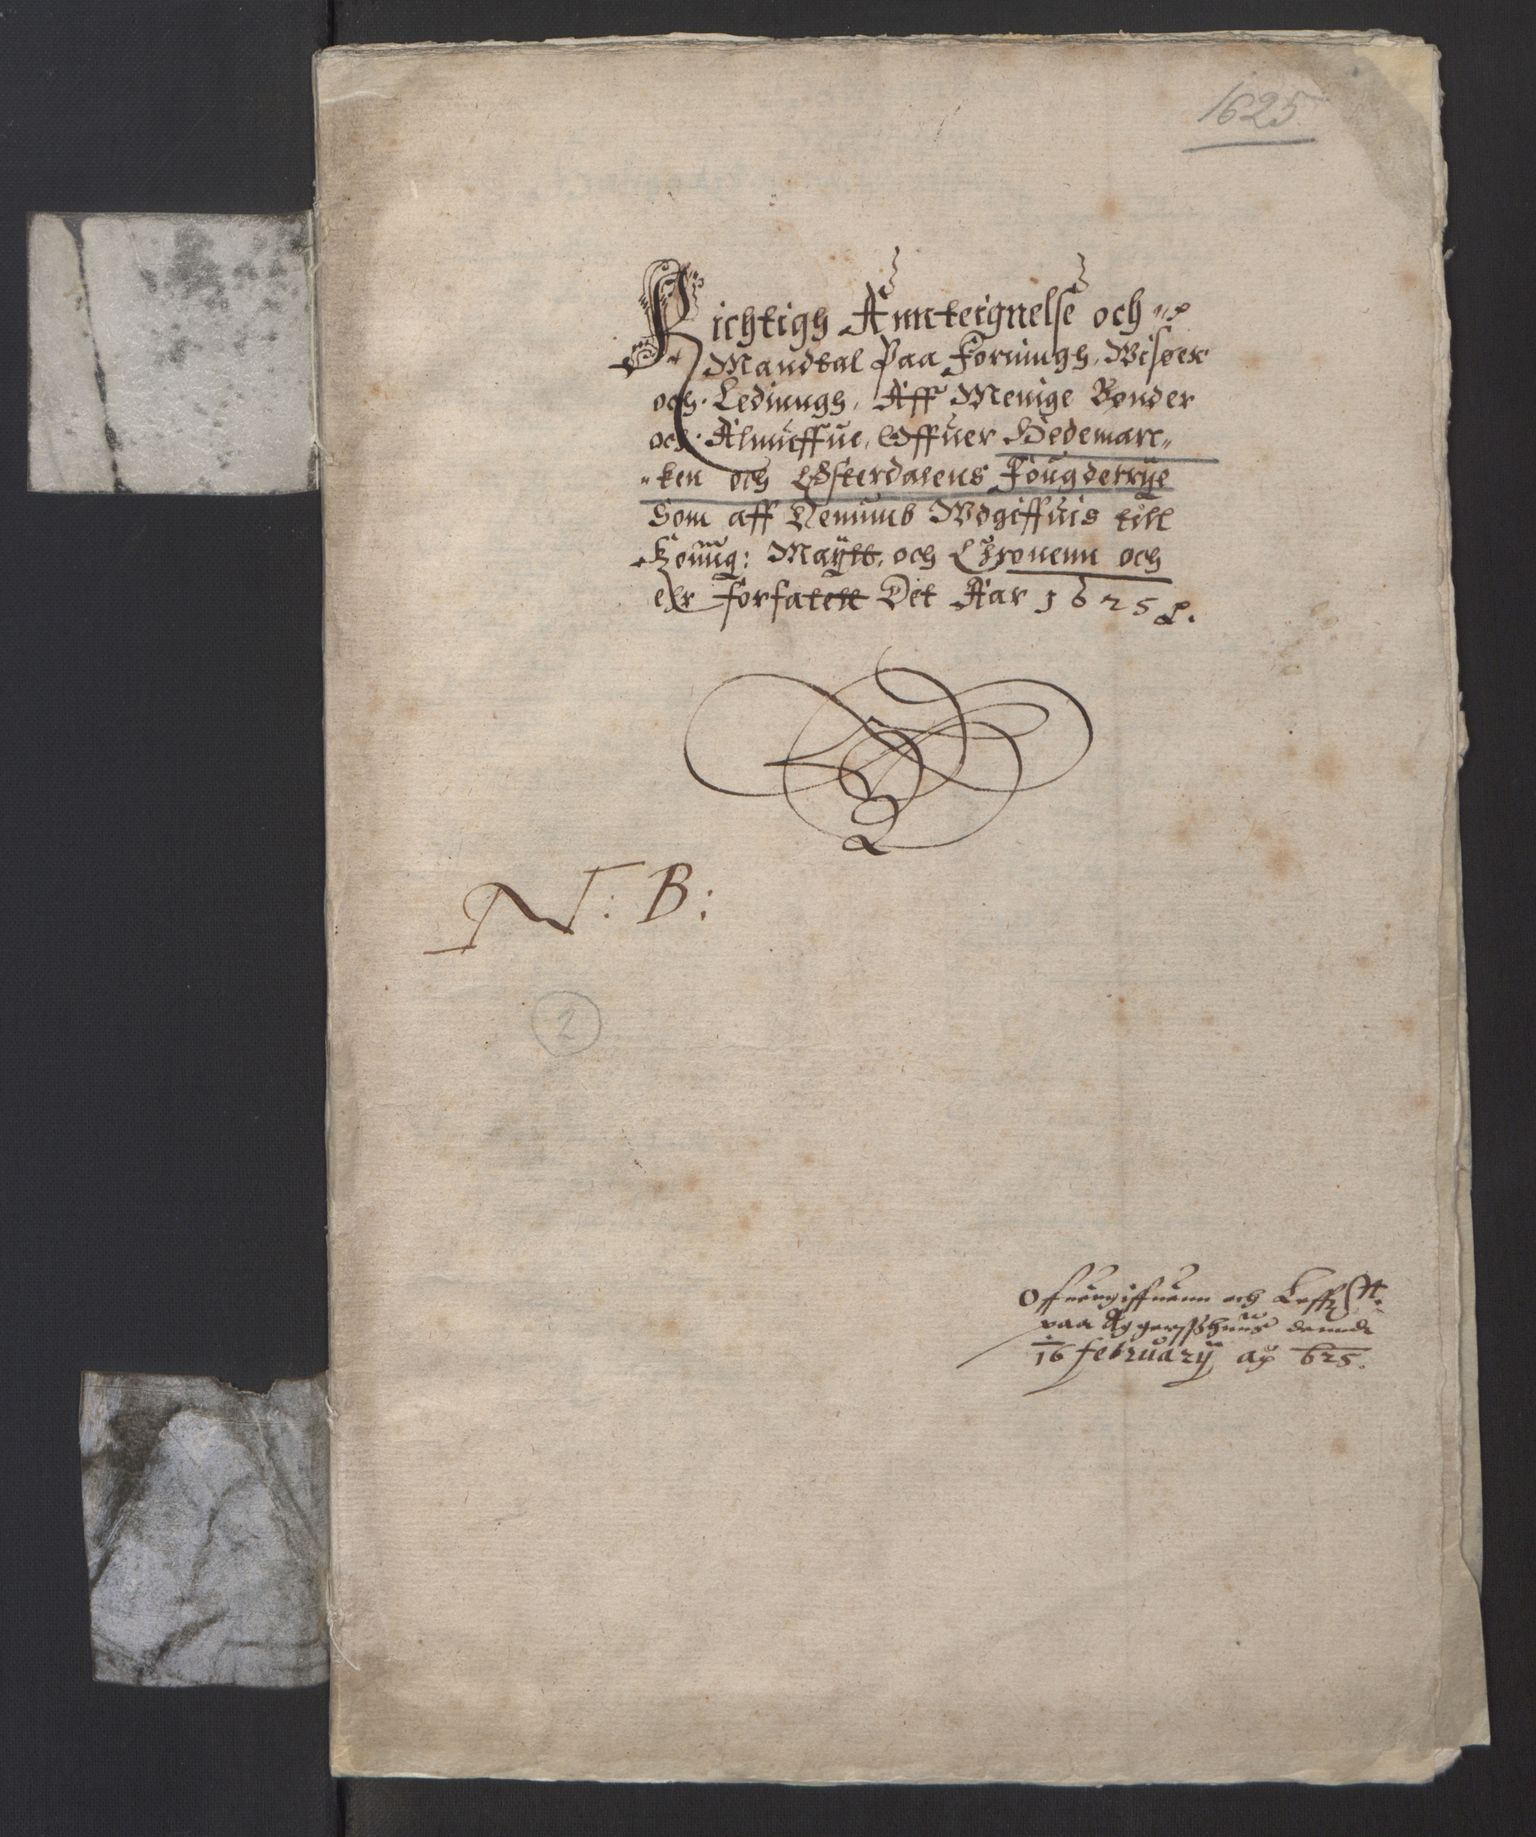 1625
Richtigh Annteignelse och
Mandtal Paa Forningh, Wisøer
och Ledinngh, Aff Menige Bønder
och Almueffue, Offuer Hedemarc„
„ken och Østerdalens Fougderrye
Som aff dennumb Wdgiffuis till
Konng: Maytt. och Chronenn och
ehr Forfatett Det Aar 1625
N: B:
2
offuergiffuenn och
paa Aggershuus dennd
16 februarij ao 625.